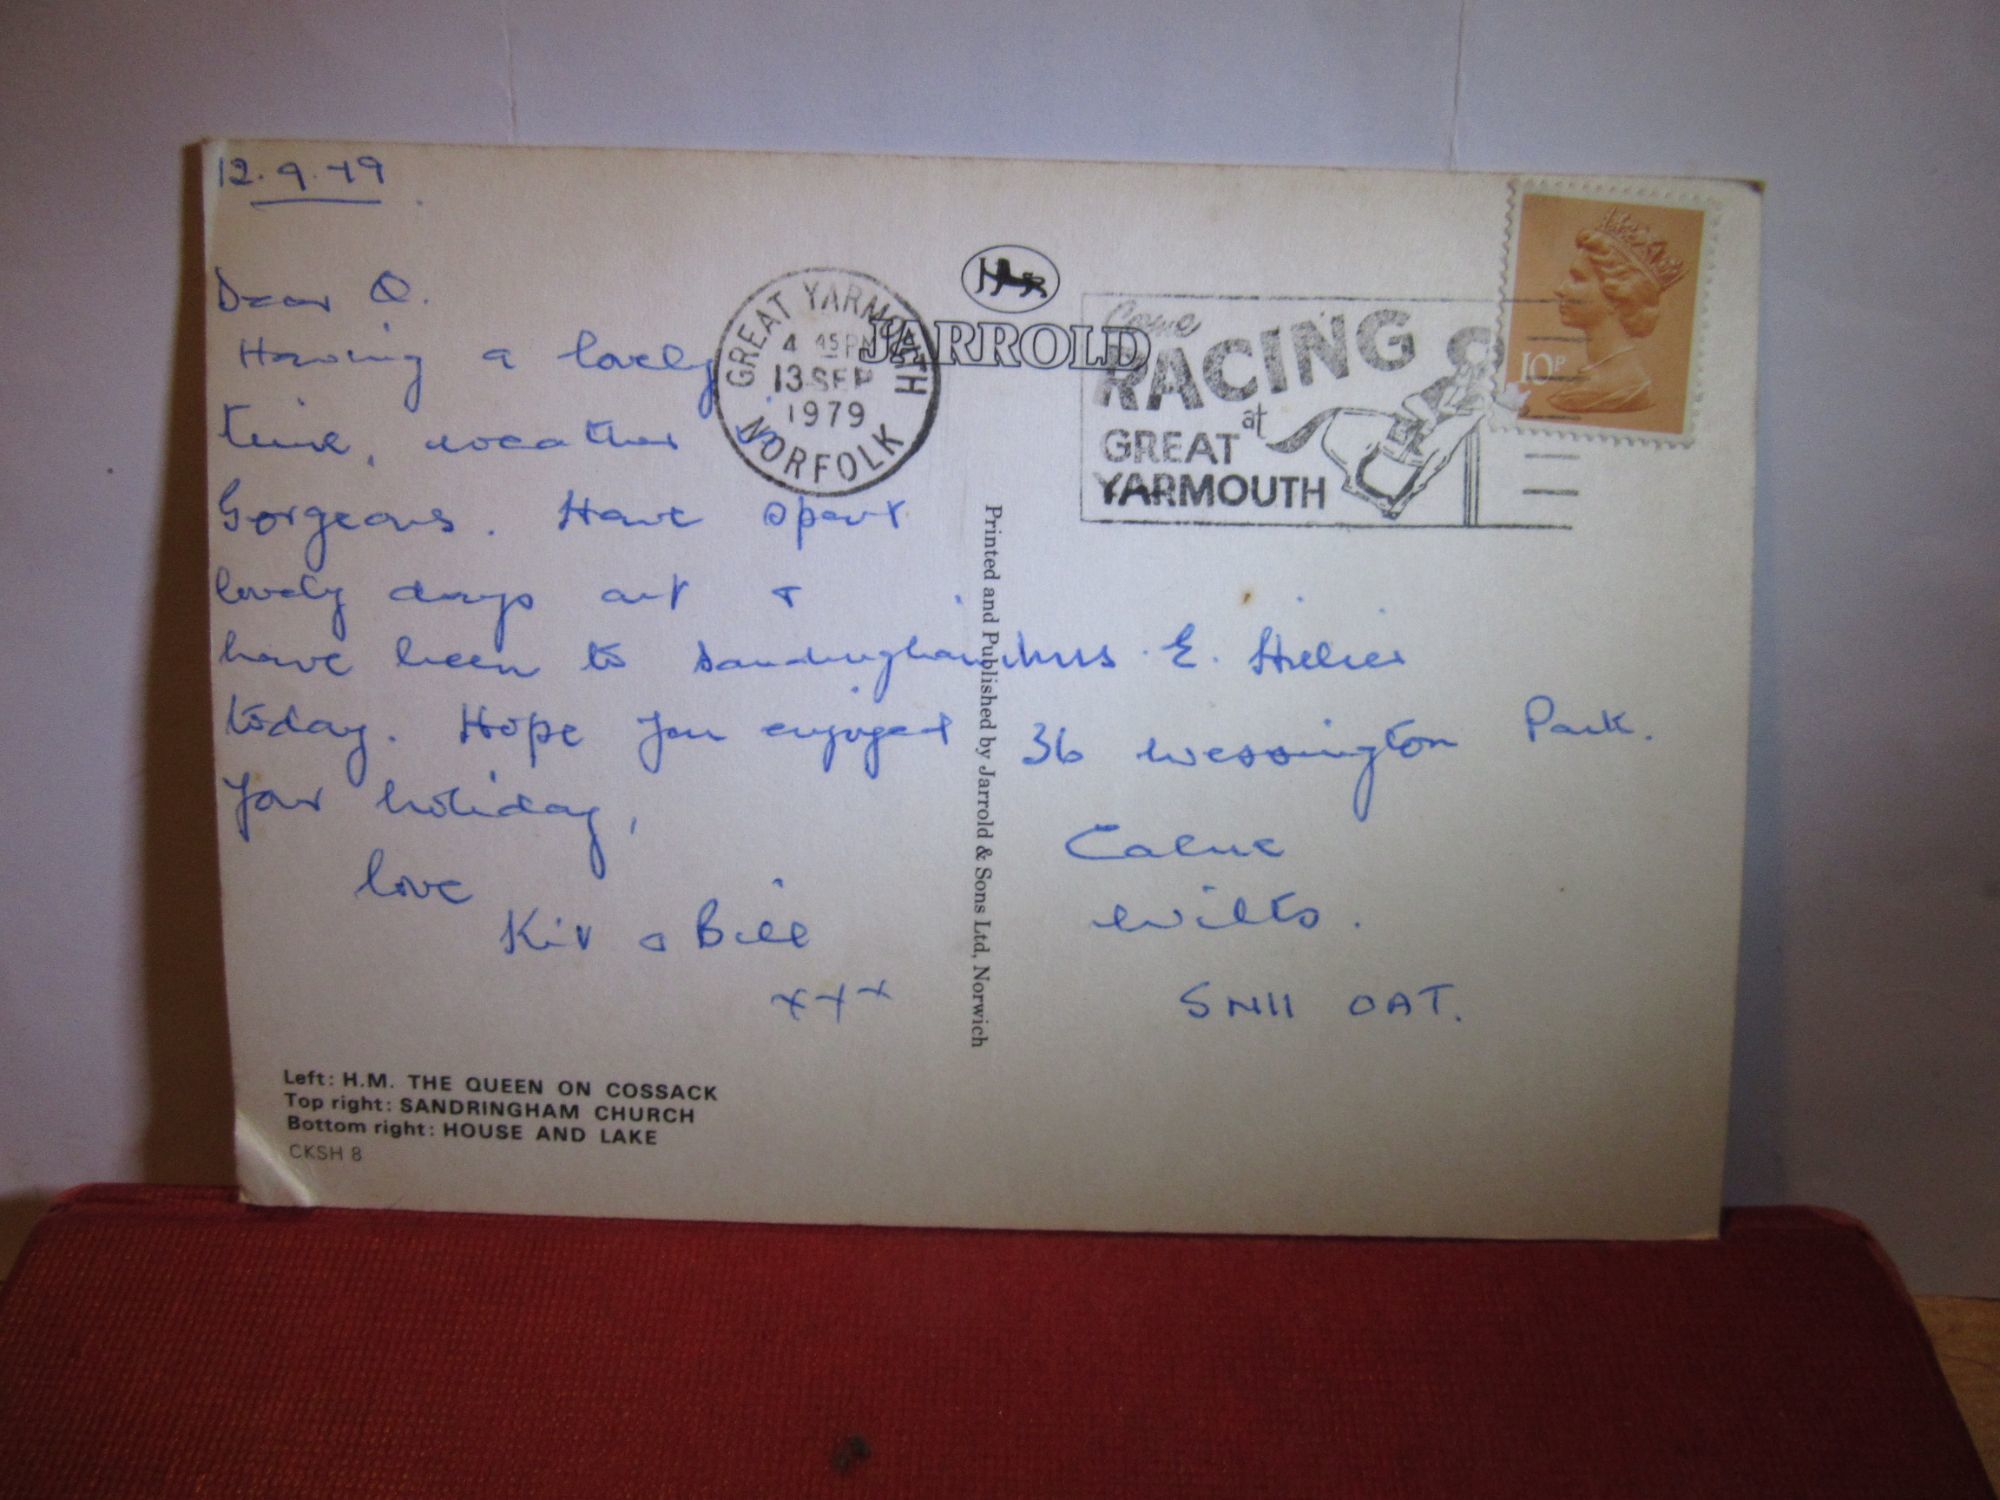 12.9.79
Dear Q.
Having a lovely
time, weather
Gorgeous. Have spent
lovely days out &
have been to Sandringham
today. Hope you enjoyed
your holiday,
love
Kit & Bill
x x x
Left: H.M. THE QUEEN ON COSSACK
Top right: SANDRINGHAM CHURCH
Bottom right: HOUSE AND LAKE
CKSH 8
GREAT YARMOUTH
4 45 PM
13 SEP
1979
NORFOLK
JARROLD
Printed and Published by Jarrold & Sons Ltd, Norwich
Come
RACING
at
GREAT
YARMOUTH
10P
Mrs. E. Hillier
36 Wessington Park.
Calne
Wilts.
SN11 0AT.